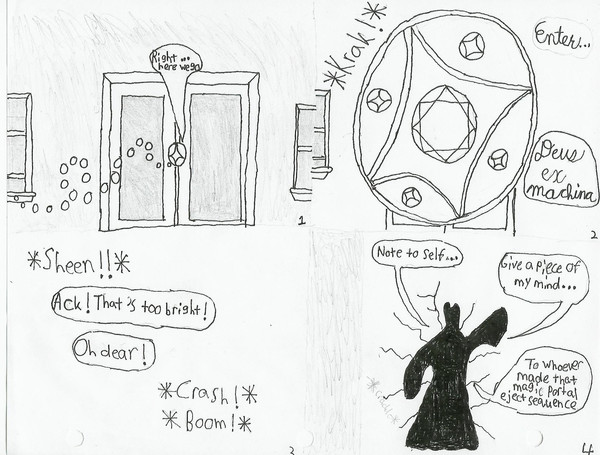 Right...
here we go
1
*Krak!*
Enter...
Deus
ex
machina
2
*Sheen!!*
Ack! That is too bright!
Oh dear!
*Crash!*
*Boom!*
3
Note to self...
Give a piece of
my mind...
To whoever
made that
magic portal
eject sequence
4